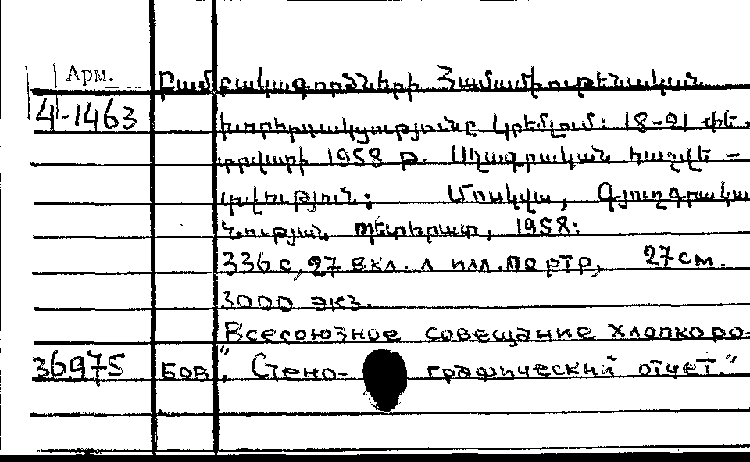 Арм.
Բամբակագործների Համամիութենական
4-1463
խորհրդակցությունը Կրեմլում: 18-21 փե-
տրվարի 1958 թ. Սղագրական հաշվե-
տվություն: Մոսկվա, Գյուղգրակա
նության պետհրատ, 1958:
336 с, 27 вкл. л илл. портр, 27 см.
3000 экз.
Всесоюзное совещание хлопкоро-
36975 Бов, "Стено- графический отчет."